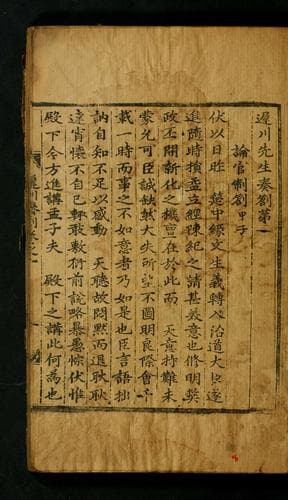 遲川先生奏劄第一
論官制劄甲子
伏以日昨 筵中經文生義轉及治道大臣遂
進隨時損益立經陳紀之請甚義意也修明奬
政丕開新化之機亶在於此而 天意持難未
蒙允可臣誠缺然大失所望不圖明良際會千
載一時而事之不如意者乃如是也臣言語拙
訥自知不足以感動 天聽故悶默而退耿耿
達宵懷不自已輒敢敷衍前說略暴愚悰伏惟
殿下今方進講孟子夫 殿下之講此何爲也
遲川奏劄卷之一